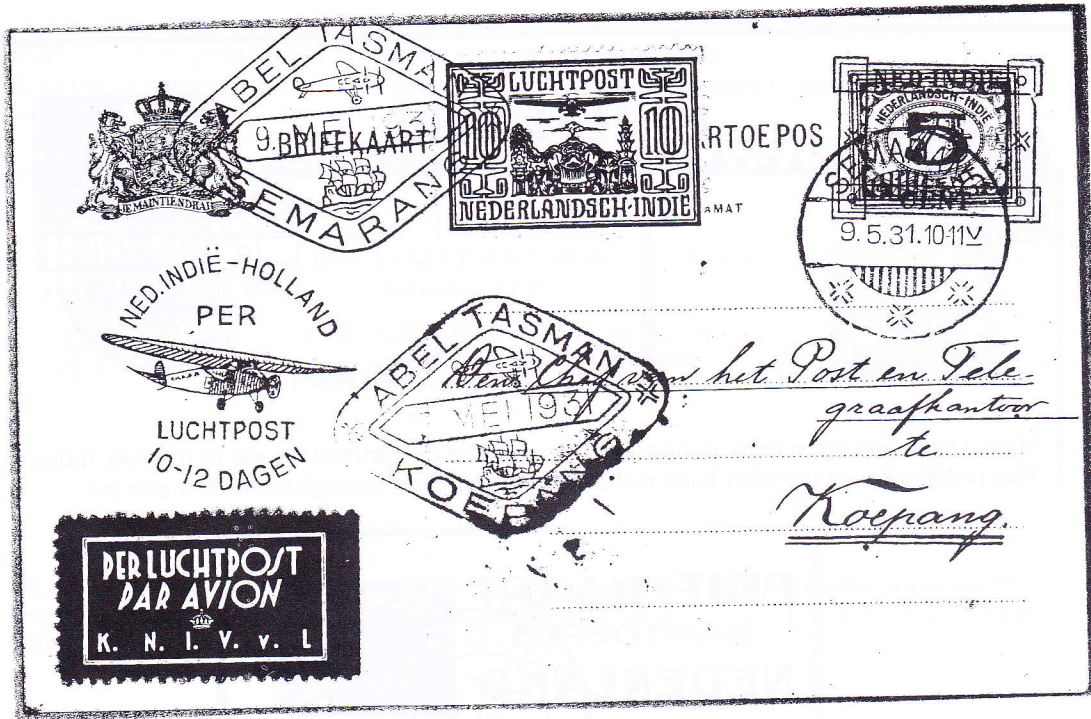 ABEL TASMAN
9. MEI 1931
SEMARANG
BRIEFKAART
JE MAINTIENDRAI
LUCHTPOST
10 10
NEDERLANDSCH-INDIE
ARTOEPOS
AMAT
NED-INDIE
NEDERLANDSCH-INDIE
5
CENT
9.5.31.10-11V
NED. INDIË-HOLLAND
PER
LUCHTPOST
10-12 DAGEN
ABEL TASMAN
MEI 1931
KOEPANG
Den Chef van het Post en Tele-
graafkantoor
te
Koepang.
PER LUCHTPOST
PAR AVION
K. N. I. L. v. L